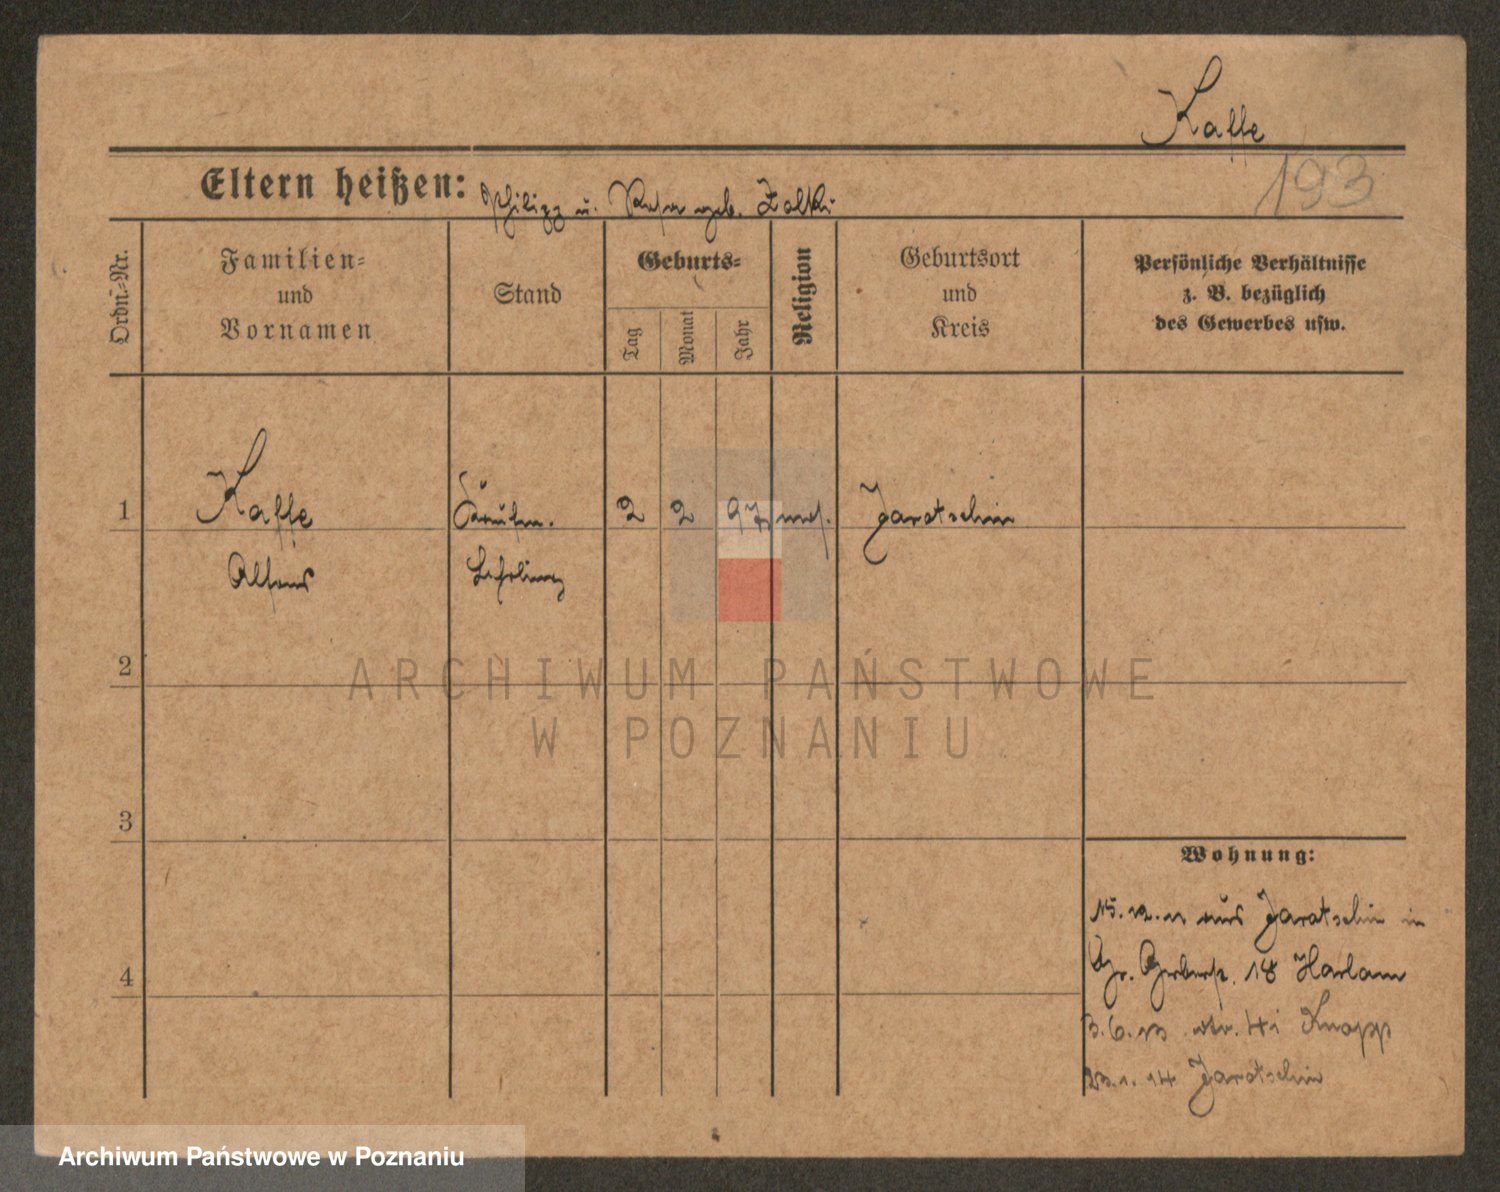 Kaffe
193
Eltern heißen: Philipp u. Rosa geb. Zolki
Ordn.=Nr.
Familien=
und
Vornamen
Stand
Geburts=
Tag
Monat
Jahr
Religion
Geburtsort
und
Kreis
Persönliche Verhältnisse
z. B. bezüglich
des Gewerbes usw.
1 Kaffe 2 2 97 mos. Jarotschin
Alfons Lehrling
2
3
4
Wohnung:
15.12.11 aus Jarotschin in
Gr. Gerberstr. 18 Harlam
3.6.13 Knopp
23.1.14 Jarotschin
ARCHIWUM PAŃSTWOWE
W POZNANIU
Archiwum Państwowe w Poznaniu